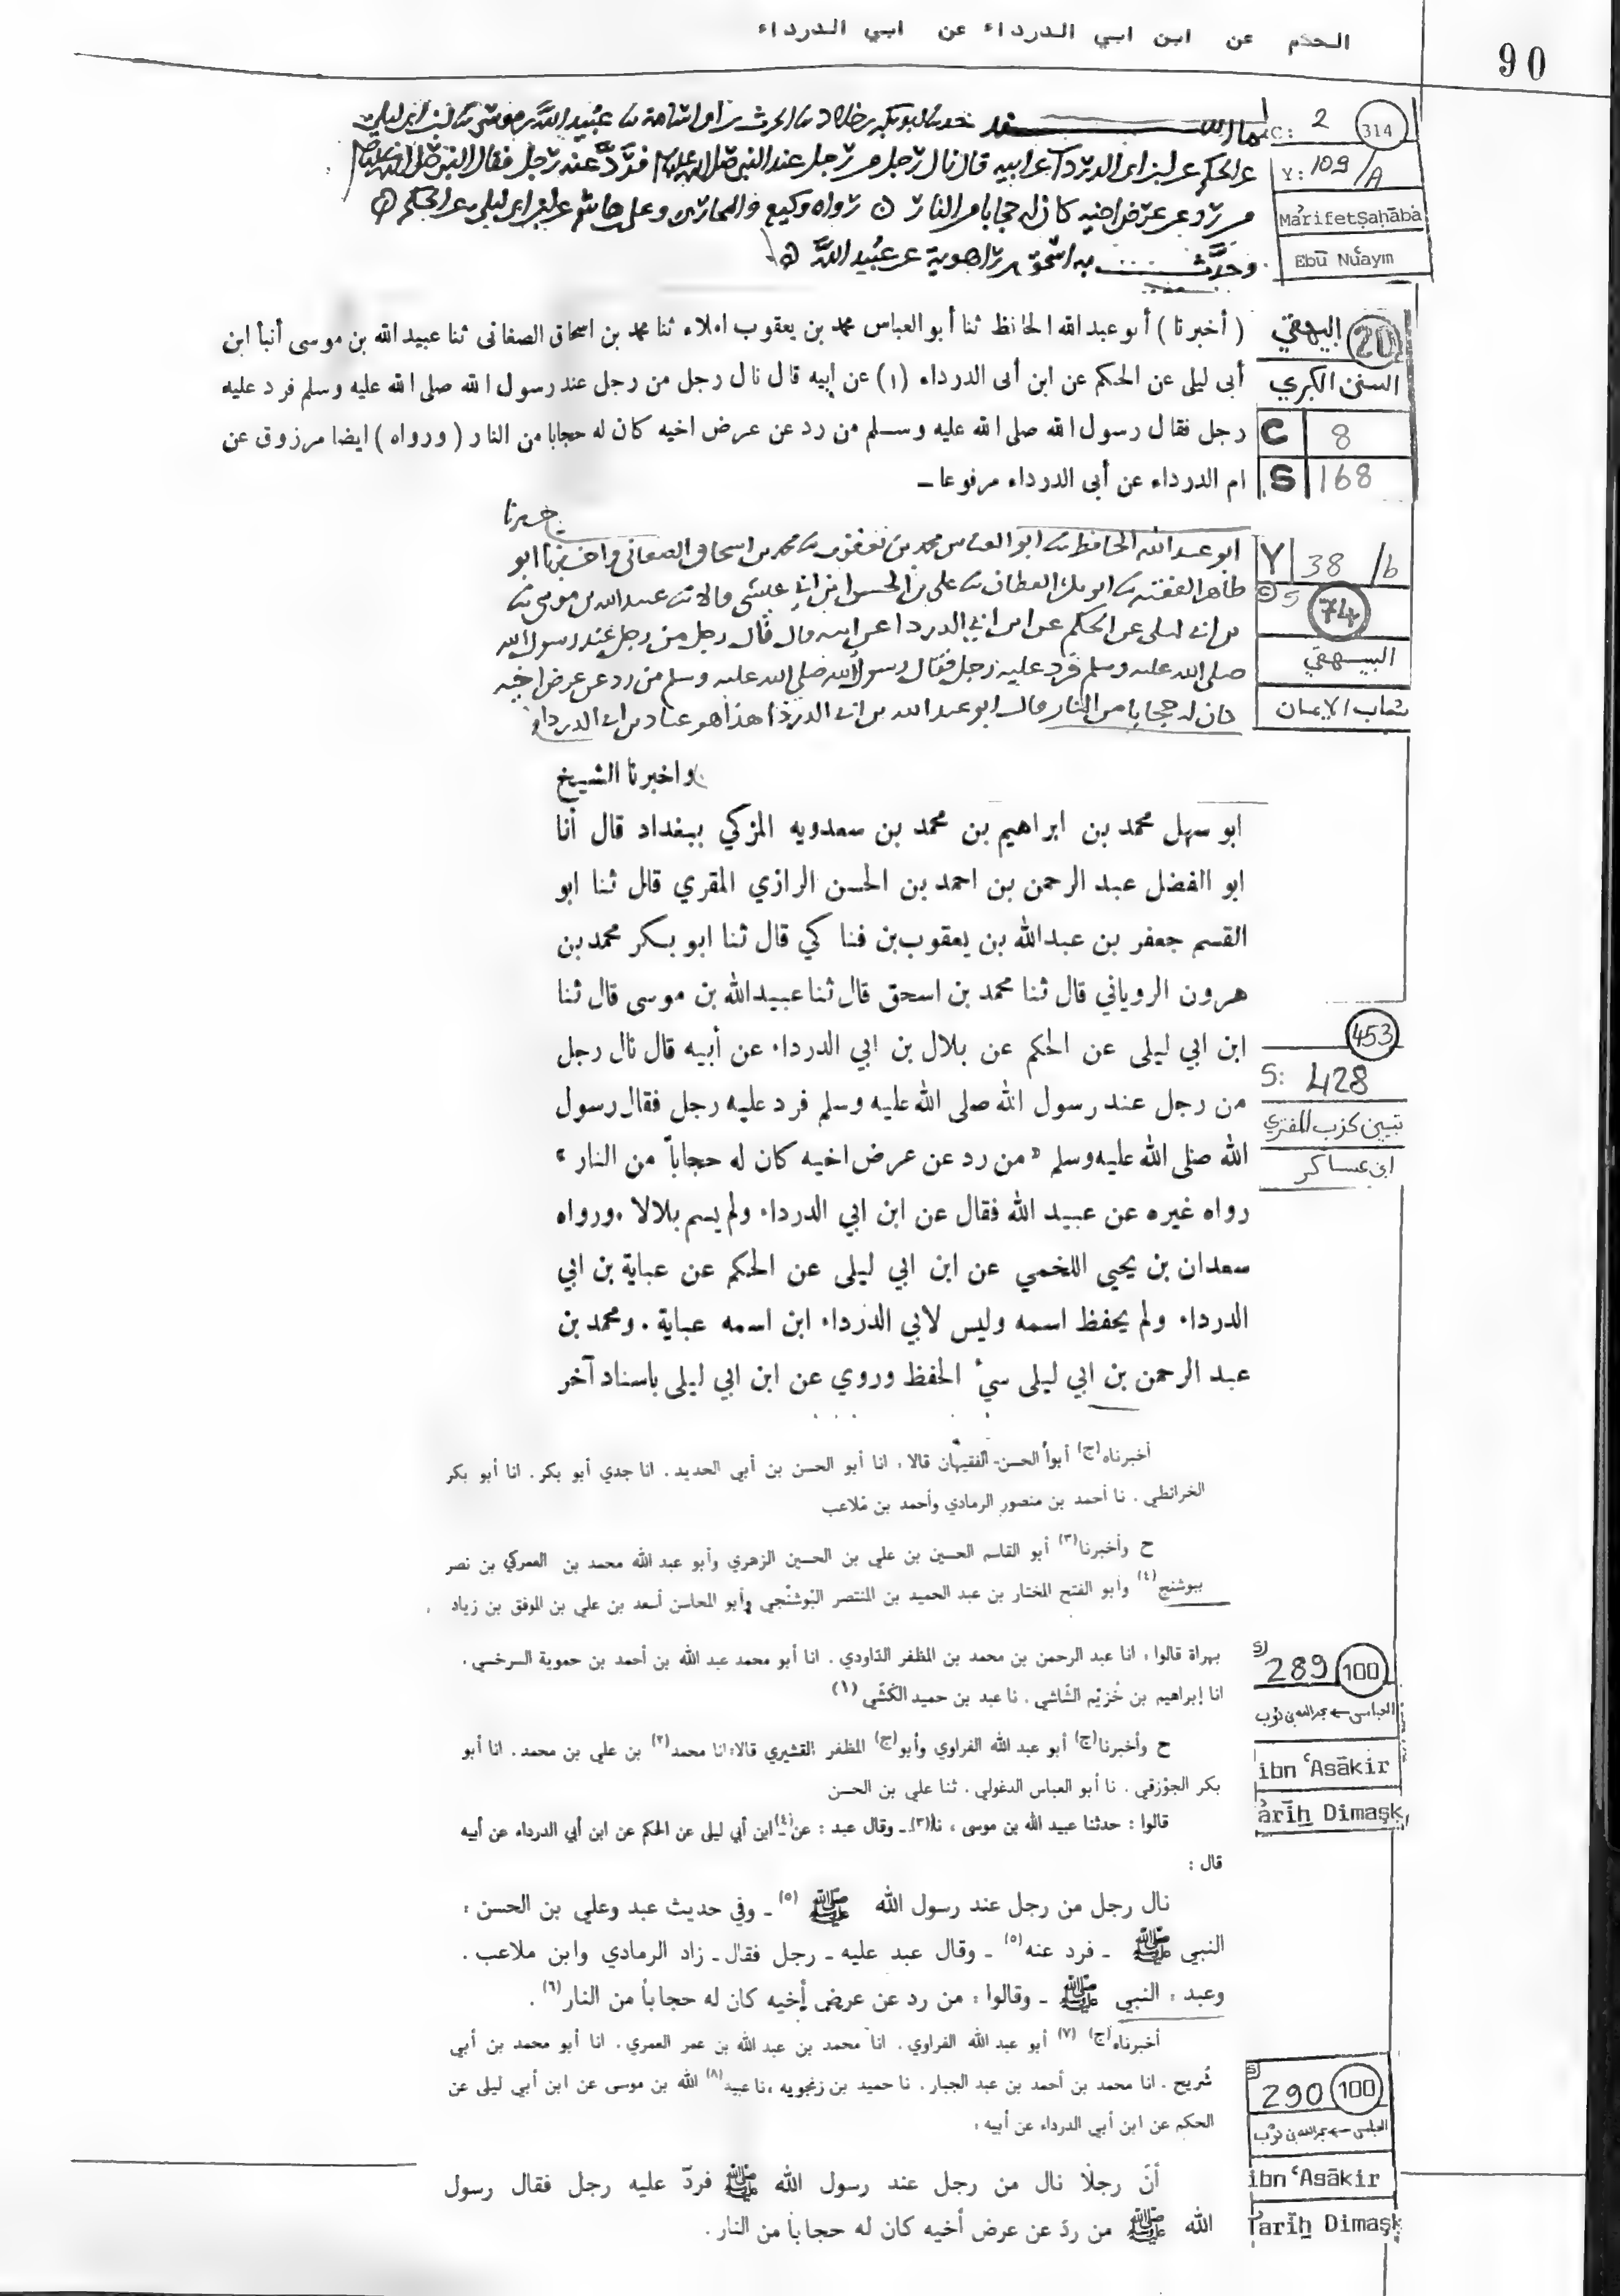 الحكم عن ابن ابي الدرداء عن ابي الدرداء
90
314
C: 2
Y: 109/A
Ma'rifetṢaḥāba
Ebū Nuʿaym
حدثنا ابو بكر بن خلاد ثنا الحرث بن ابي اسامة ثنا عبيد الله بن موسى ثنا ابن ابي ليلى
عن الحكم عن ابن ابي الدرداء عن ابيه قال نال رجل من رجل عند النبي صلى الله عليه وسلم فرد عنه رجل فقال النبي صلى الله عليه
من رد عن عرض اخيه كان له حجابا من النار رواه وكيع والمحاربي وعلي بن هاشم عن ابن ابي ليلى عن الحكم
وحدث به اسحق بن راهوية عن عبيد الله
20
البيهقي
السنن الكبرى
C 8
S 168
( أخبرنا ) أبو عبد الله الحافظ ثنا أبو العباس محمد بن يعقوب املاء ثنا محمد بن اسحاق الصغانى ثنا عبيد الله بن موسى أنبأ ابن
أبى ليلى عن الحكم عن ابن أبى الدرداء (١) عن ابيه قال نال رجل من رجل عند رسول الله صلى الله عليه وسلم فرد عليه
رجل فقال رسول الله صلى الله عليه وسلم من رد عن عرض اخيه كان له حجابا من النار ( ورواه ) ايضا مرزوق عن
ام الدرداء عن أبى الدرداء مرفوعا ـ
Y 38/b
74
البيهقي
شعاب الايمان
اخبرنا
ابو عبد الله الحافظ ثنا ابو العباس محمد بن يعقوب ثنا محمد بن اسحاق الصغاني واخبرنا ابو
طاهر الفقيه ثنا ابو بكر القطان ثنا علي بن الحسن ابن ابي عيسى قالا ثنا عبيد الله بن موسى ثنا
بن ابي ليلى عن الحكم عن ابن ابي الدرداء عن ابيه قال نال رجل من رجل عند رسول الله
صلى الله عليه وسلم فرد عليه رجل فقال رسول الله صلى الله عليه وسلم من رد عن عرض اخيه
كان له حجابا من النار قال ابو عبد الله بن ابي الدرداء هذا هو عباد بن ابي الدرداء
واخبرنا الشيخ
ابو سهل محمد بن ابراهيم بن محمد بن سعدويه المزكي ببغداد قال أنا
ابو الفضل عبد الرحمن بن احمد بن الحسن الرازي المقري قال ثنا ابو
القسم جعفر بن عبدالله بن يعقوب بن فنا كي قال ثنا ابو بكر محمد بن
هرون الروياني قال ثنا محمد بن اسحق قال ثنا عبيدالله بن موسى قال ثنا
ابن ابي ليلى عن الحكم عن بلال بن ابي الدرداء عن أبيه قال نال رجل
من رجل عند رسول الله صلى الله عليه وسلم فرد عليه رجل فقال رسول
الله صلى الله عليه وسلم « من رد عن عرض اخيه كان له حجاباً من النار »
رواه غيره عن عبيد الله فقال عن ابن ابي الدرداء ولم يسم بلالا . ورواه
سعدان بن يحيى اللخمي عن ابن ابي ليلى عن الحكم عن عباية بن ابي
الدرداء ولم يحفظ اسمه وليس لابي الدرداء ابن اسمه عباية . ومحمد بن
عبد الرحمن بن ابي ليلى سيء الحفظ وروي عن ابن ابي ليلى باسناد آخر
453
S: 428
تبيين كذب المفتري
ابن عساكر
أخبرناه(ج) أبوا الحسن ـ الفقيهان قالا ، انا أبو الحسن بن أبي الحديد . انا جدي أبو بكر . انا أبو بكر
الخرائطي . نا أحمد بن منصور الرمادي وأحمد بن مُلاعب
ح وأخبرنا(٣) أبو القاسم الحسين بن علي بن الحسين الزهري وأبو عبد الله محمد بن العمركي بن نصر
ببوشنج(٤) وأبو الفتح المختار بن عبد الحميد بن المنتصر البُوشنْجي وأبو المحاسن أسعد بن علي بن الموفق بن زياد
بهراة قالوا ، انا عبد الرحمن بن محمد بن المظفر الدّاودي . انا أبو محمد عبد الله بن أحمد بن حموية السرخسي .
انا إبراهيم بن خُزيْم الشّاشي . نا عبد بن حميد الكَشّي (١)
ح وأخبرنا(ج) أبو عبد الله الفراوي وأبو(ج) المظفر القشيري قالا ، انا محمد(٢) بن علي بن محمد . انا أبو
بكر الجوْزقي . نا أبو العباس الدغولي . ثنا علي بن الحسن
قالوا : حدثنا عبيد الله بن موسى ، نا(٣) ـ وقال عبد : عن(٤) ـ ابن أبي ليلى عن الحكم عن ابن أبي الدرداء عن أبيه
قال :
نال رجل من رجل عند رسول الله ﷺ (٥) ـ وفي حديث عبد وعلي بن الحسن ،
النبي ﷺ ـ فرد عنه(٥) ـ وقال عبد عليه ـ رجل فقال ـ زاد الرمادي وابن ملاعب .
وعبد ، النبي ﷺ ـ وقالوا ، من رد عن عرض أخيه كان له حجاباً من النار(٦) .
s) 289
100
العباسى ← عبدالله بن ثوب
ibn ʿAsākir
ārīḫ Dimaşk
أخبرناه(ج) (٧) أبو عبد الله الفراوي . انا محمد بن عبد الله بن عمر العمري . انا أبو محمد بن أبي
شُريح . انا محمد بن أحمد بن عبد الجبار . نا حميد بن زنجويه ، نا عبيد(٨) الله بن موسى عن ابن أبي ليلى عن
الحكم عن ابن أبي الدرداء عن أبيه ،
أنّ رجلًا نال من رجل عند رسول الله ﷺ فردّ عليه رجل فقال رسول
الله ﷺ من ردّ عن عرض أخيه كان له حجاباً من النار .
s) 290
100
العباسى ← عبدالله بن ثوب
ibn ʿAsākir
Tārīḫ Dimaşk